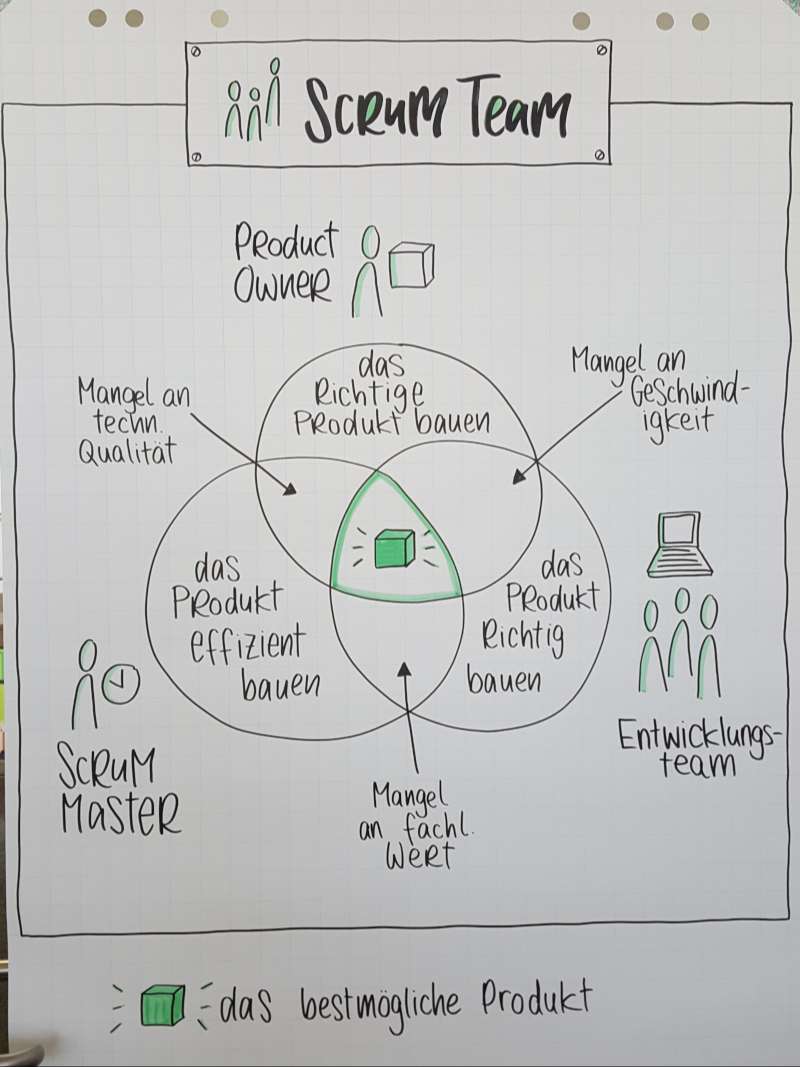 Scrum Team
Product
Owner
das
Richtige
Produkt bauen
Mangel an
Geschwind-
igkeit
Mangel an
techn.
Qualität
das
Produkt
effizient
bauen
das
Produkt
Richtig
bauen
Scrum
Master
Entwicklungs-
team
Mangel
an fachl.
Wert
das bestmögliche Produkt